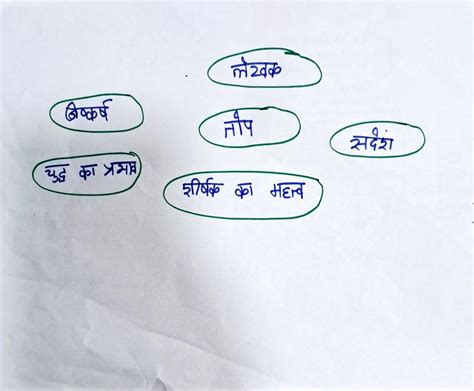 लेखक
निष्कर्ष
तोप
सदेशं
युद्ध का प्रभाव
शीर्षक का महत्व